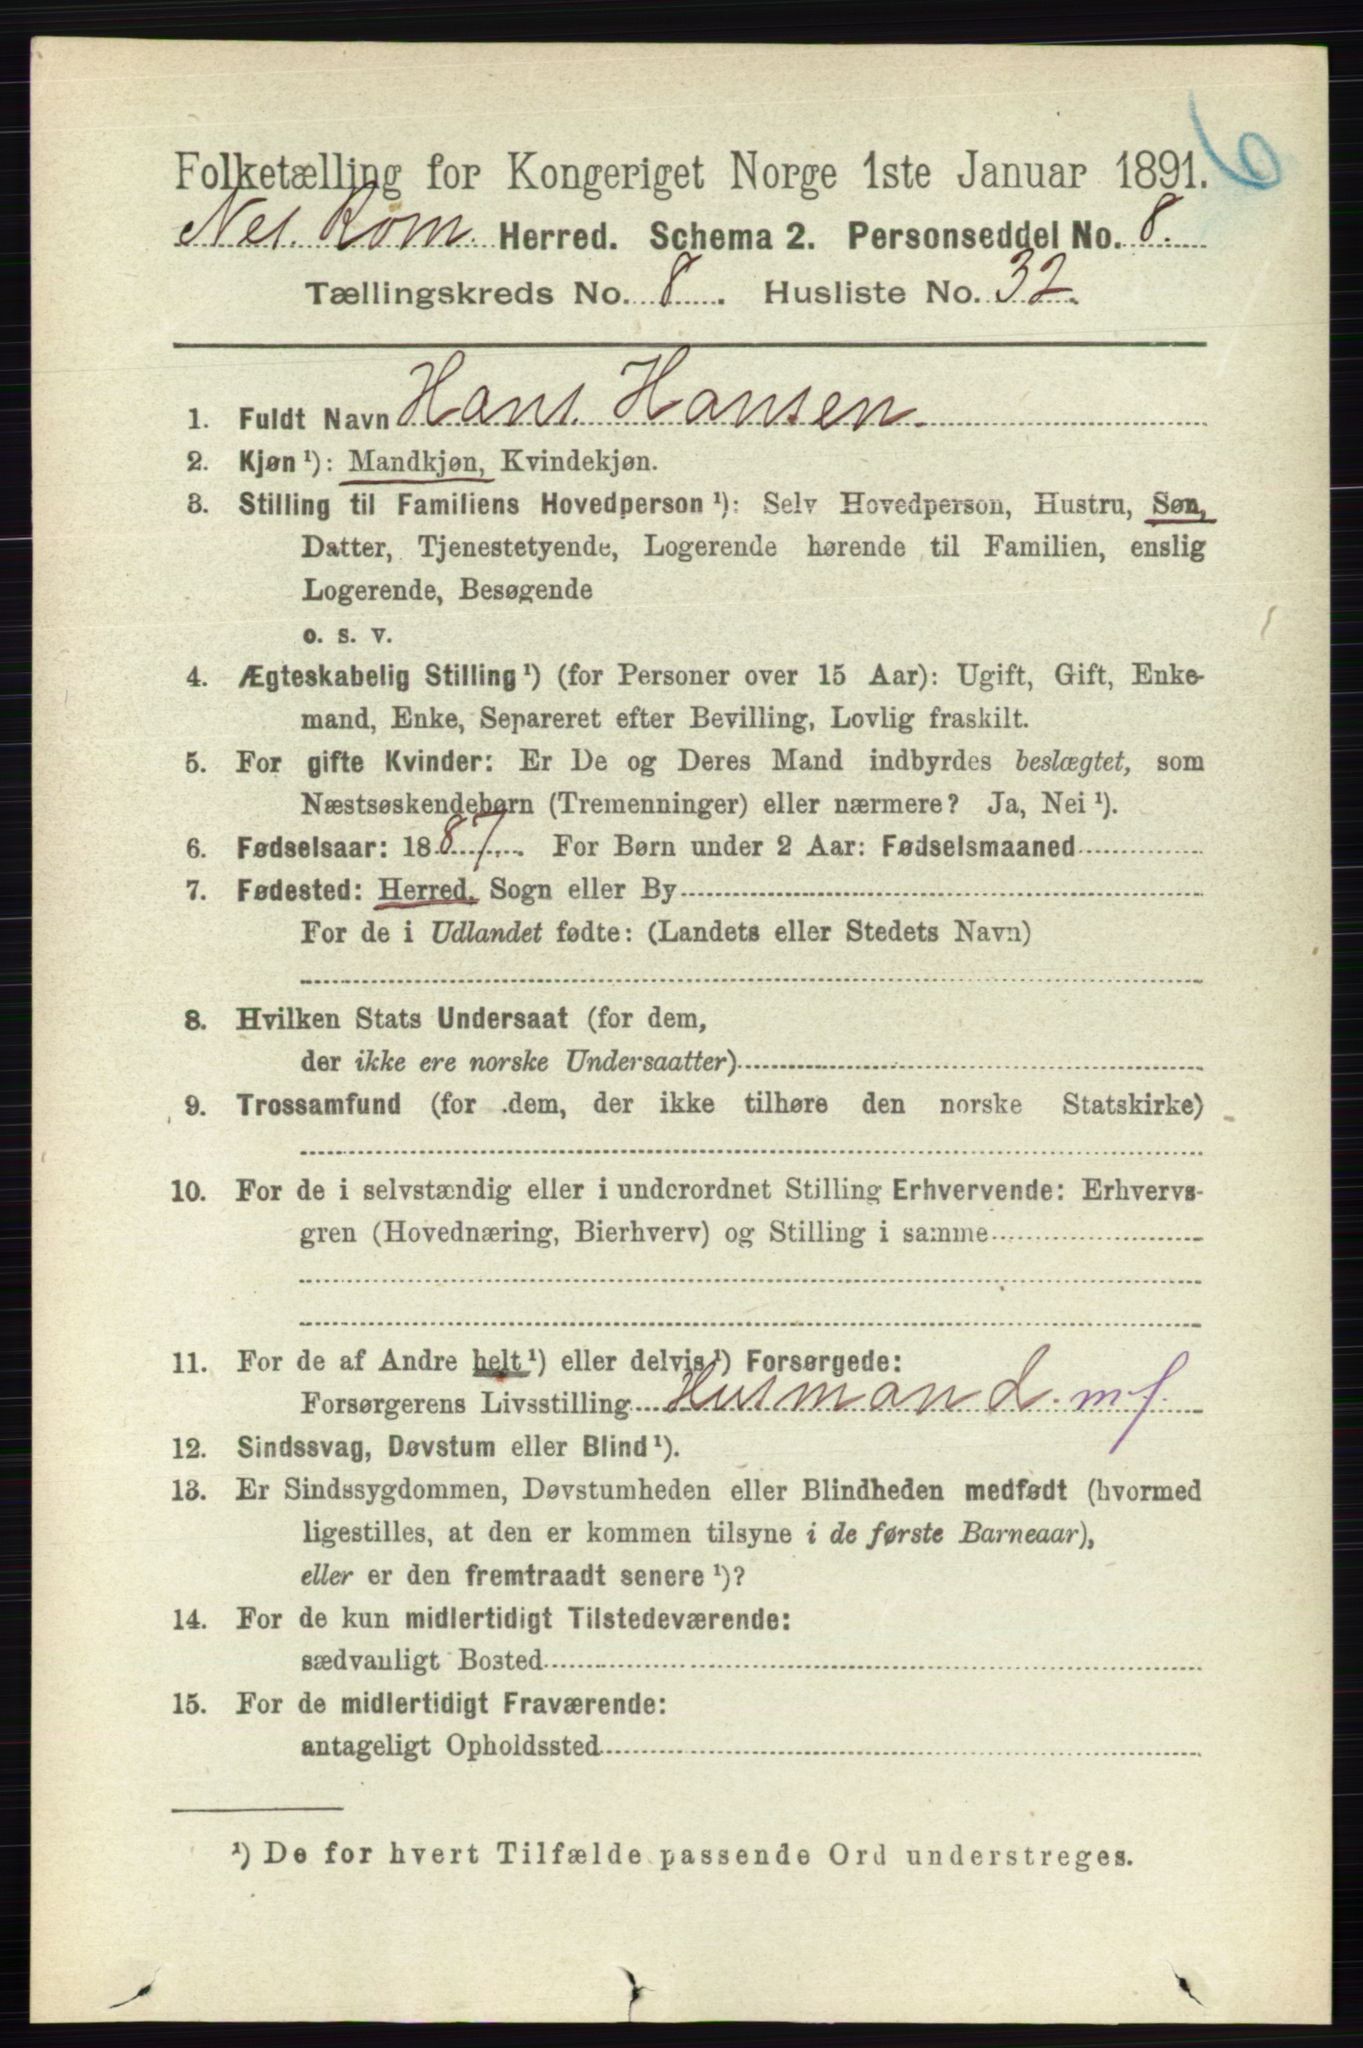 6
Folketælling for Kongeriget Norge 1ste Januar 1891.
Nes. Rom. Herred. Schema 2. Personseddel No. 8.
Tællingskreds No. 8. Husliste No. 32.
1. Fuldt Navn Hans. Hansen.
2. Kjøn ¹): Mandkjøn, Kvindekjøn.
3. Stilling til Familiens Hovedperson ¹): Selv Hovedperson, Hustru, Søn,
Datter, Tjenestetyende, Logerende hørende til Familien, enslig
Logerende, Besøgende
o. s. v.
4. Ægteskabelig Stilling ¹) (for Personer over 15 Aar): Ugift, Gift, Enke-
mand, Enke, Separeret efter Bevilling, Lovlig fraskilt.
5. For gifte Kvinder: Er De og Deres Mand indbyrdes beslægtet, som
Næstsøskendebørn (Tremenninger) eller nærmere? Ja, Nei ¹).
6. Fødselsaar: 1887. For Børn under 2 Aar: Fødselsmaaned
7. Fødested: Herred, Sogn eller By
For de i Udlandet fødte: (Landets eller Stedets Navn)
8. Hvilken Stats Undersaat (for dem,
der ikke ere norske Undersaatter)
9. Trossamfund (for dem, der ikke tilhøre den norske Statskirke)
10. For de i selvstændig eller i underordnet Stilling Erhvervende: Erhvervs-
gren (Hovednæring, Bierhverv) og Stilling i samme
11. For de af Andre helt ¹) eller delvis ¹) Forsørgede:
Forsørgerens Livsstilling Husmand. m f.
12. Sindssvag, Døvstum eller Blind ¹).
13. Er Sindssygdommen, Døvstumheden eller Blindheden medfødt (hvormed
ligestilles, at den er kommen tilsyne i de første Barneaar),
eller er den fremtraadt senere ¹)?
14. For de kun midlertidigt Tilstedeværende:
sædvanligt Bosted
15. For de midlertidigt Fraværende:
antageligt Opholdssted
¹) De for hvert Tilfælde passende Ord understreges.